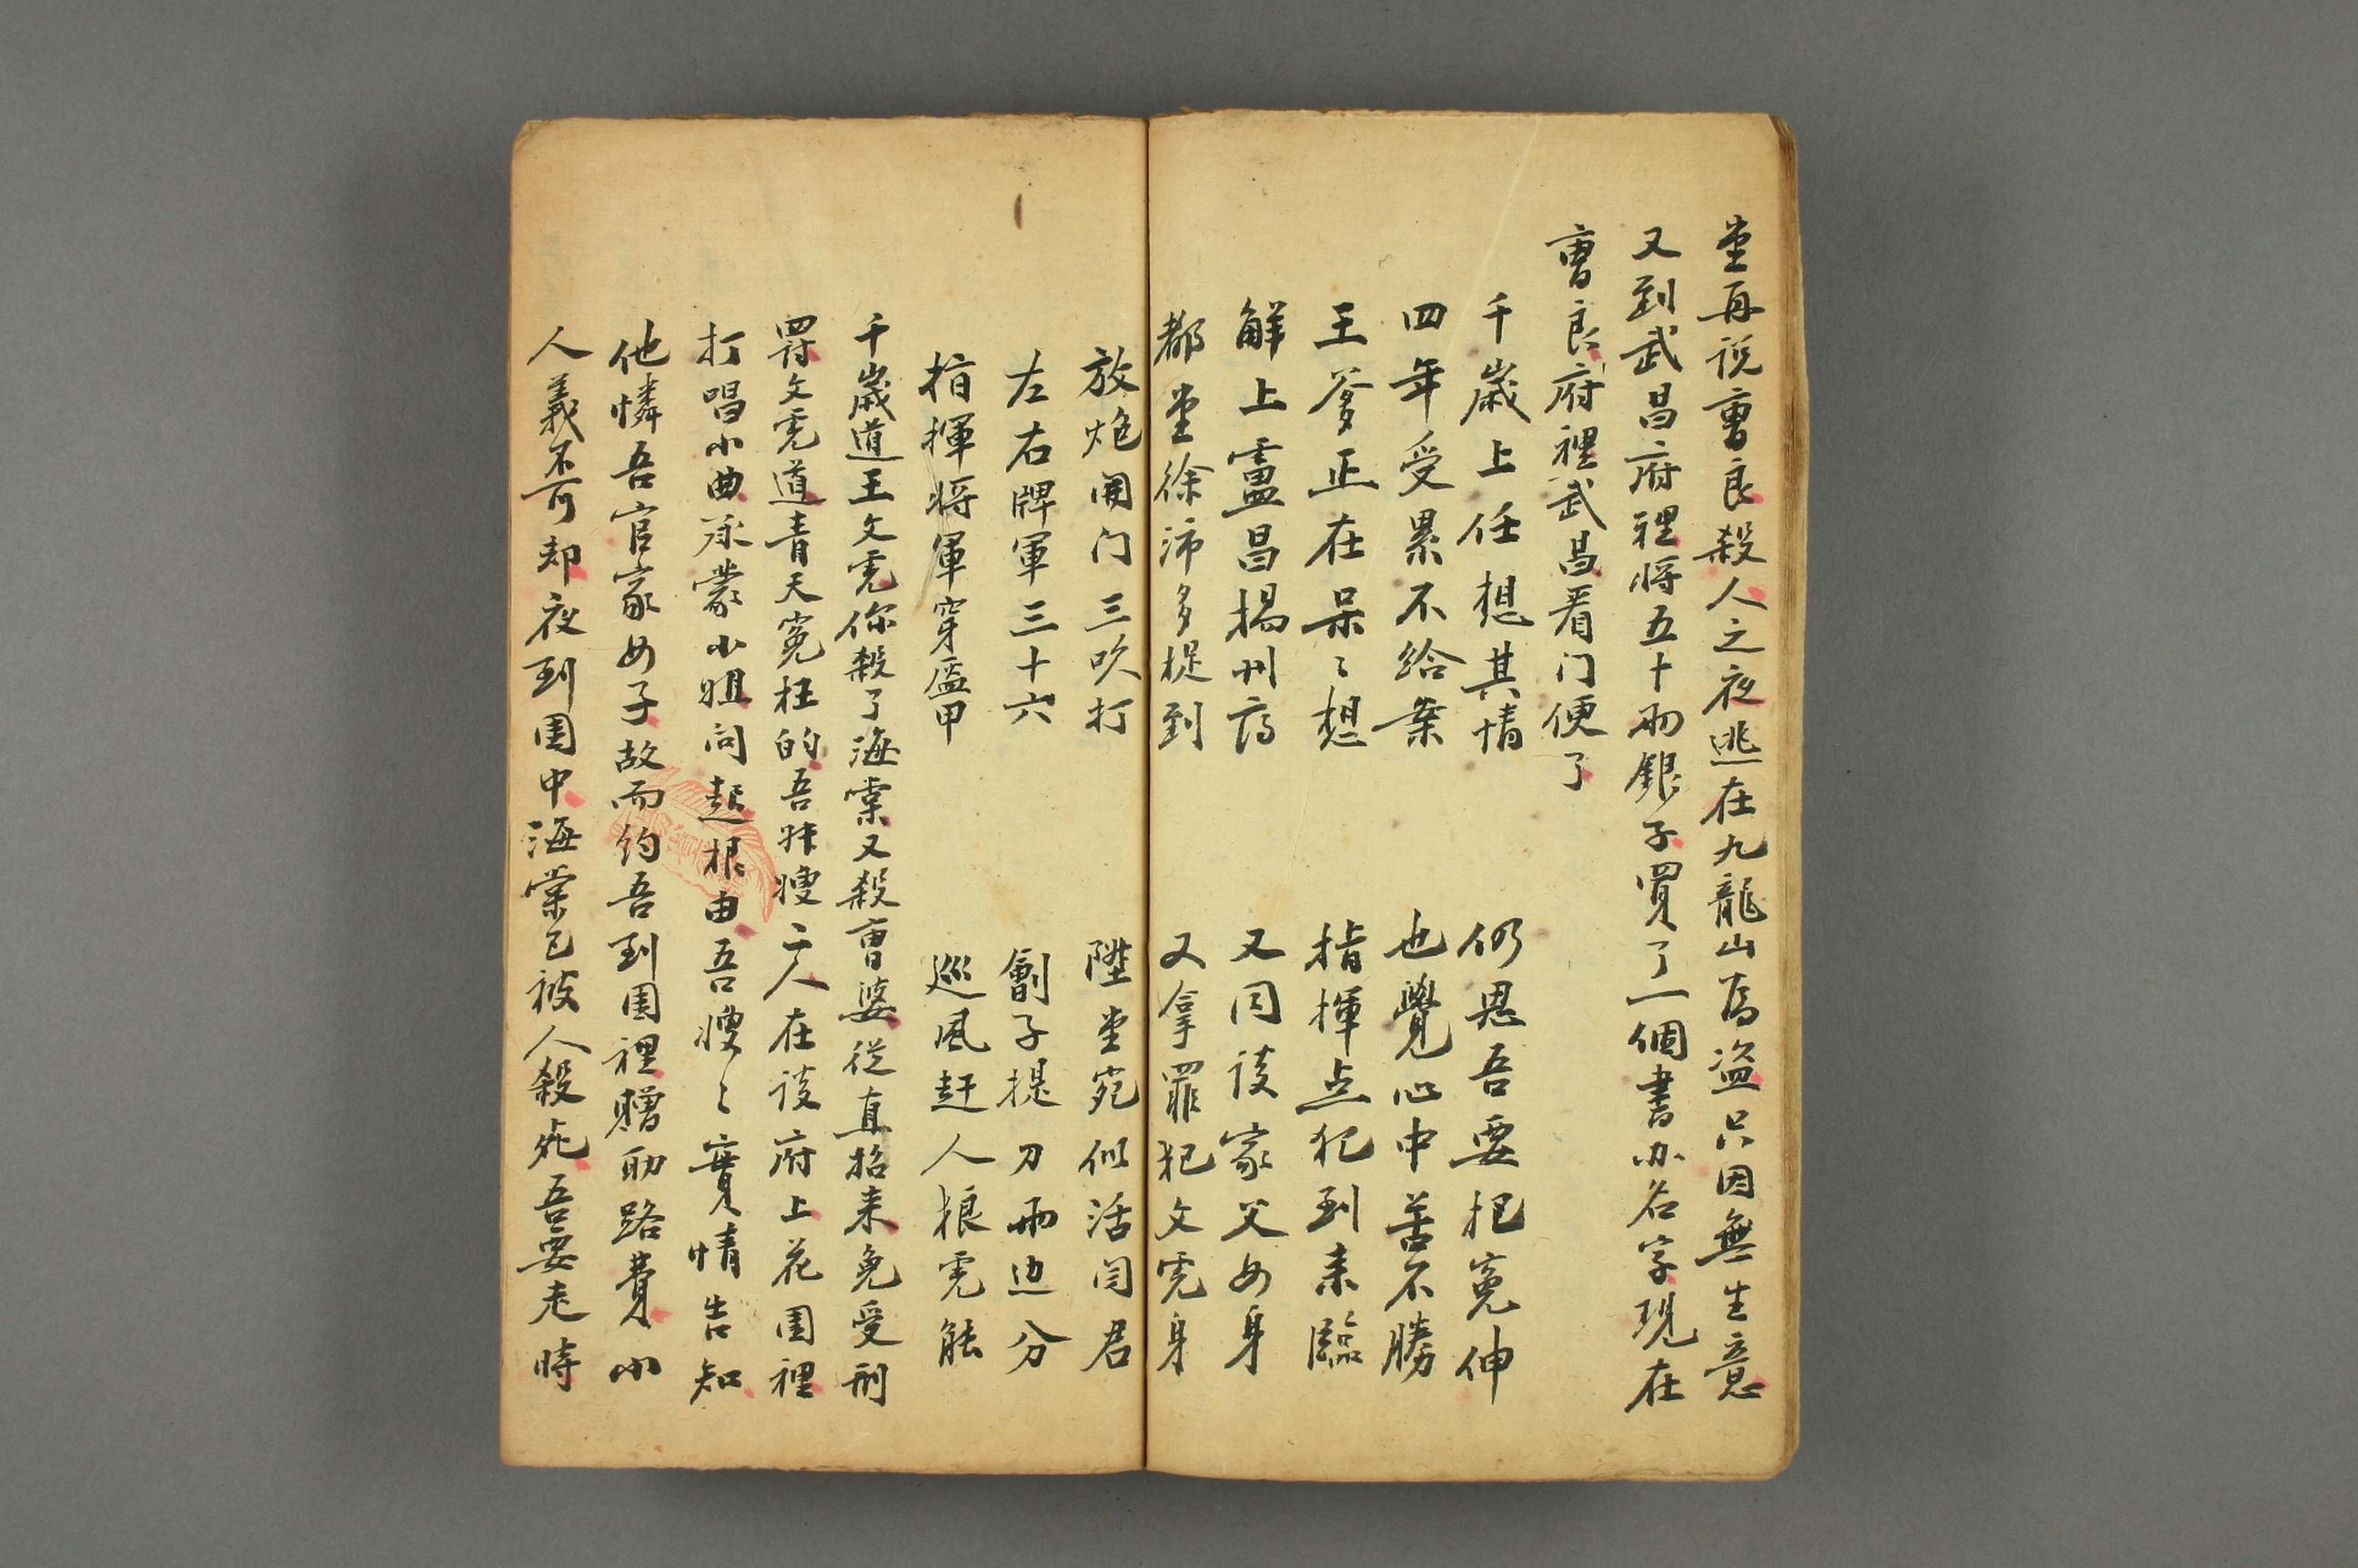 堂再说曹良殺人之夜逃在九龍山為盗只因無生意
又到武昌府裡将五十両銀子買了一個書办名字現在
曹良府裡武昌看门便了
千歳上任想其情　仍思吾要把冤伸
四年受累不给案　也覺心中苦不勝
王爹正在呆〻想　指揮点犯到来臨
解上盧昌揚州府　又同该家父女身
都堂徐沛多捉到　又拿罪犯文虎身
放炮開门三吹打　陞堂宛似活闫君
左右牌軍三十六　劊子提刀両边分
指揮将軍穿盔甲　巡風赶人狼虎能
千歳道王文虎你殺了海棠又殺曹婆從直招来免受刑
罸文虎道青天冤枉的吾姊嫂二人在该府上花園裡
打唱小曲承蒙小姐问起根由吾嫂〻實情告知
他憐吾官家女子故而约吾到園裡贈助路費小
人義不可却夜到園中海棠已被人殺死吾要走時